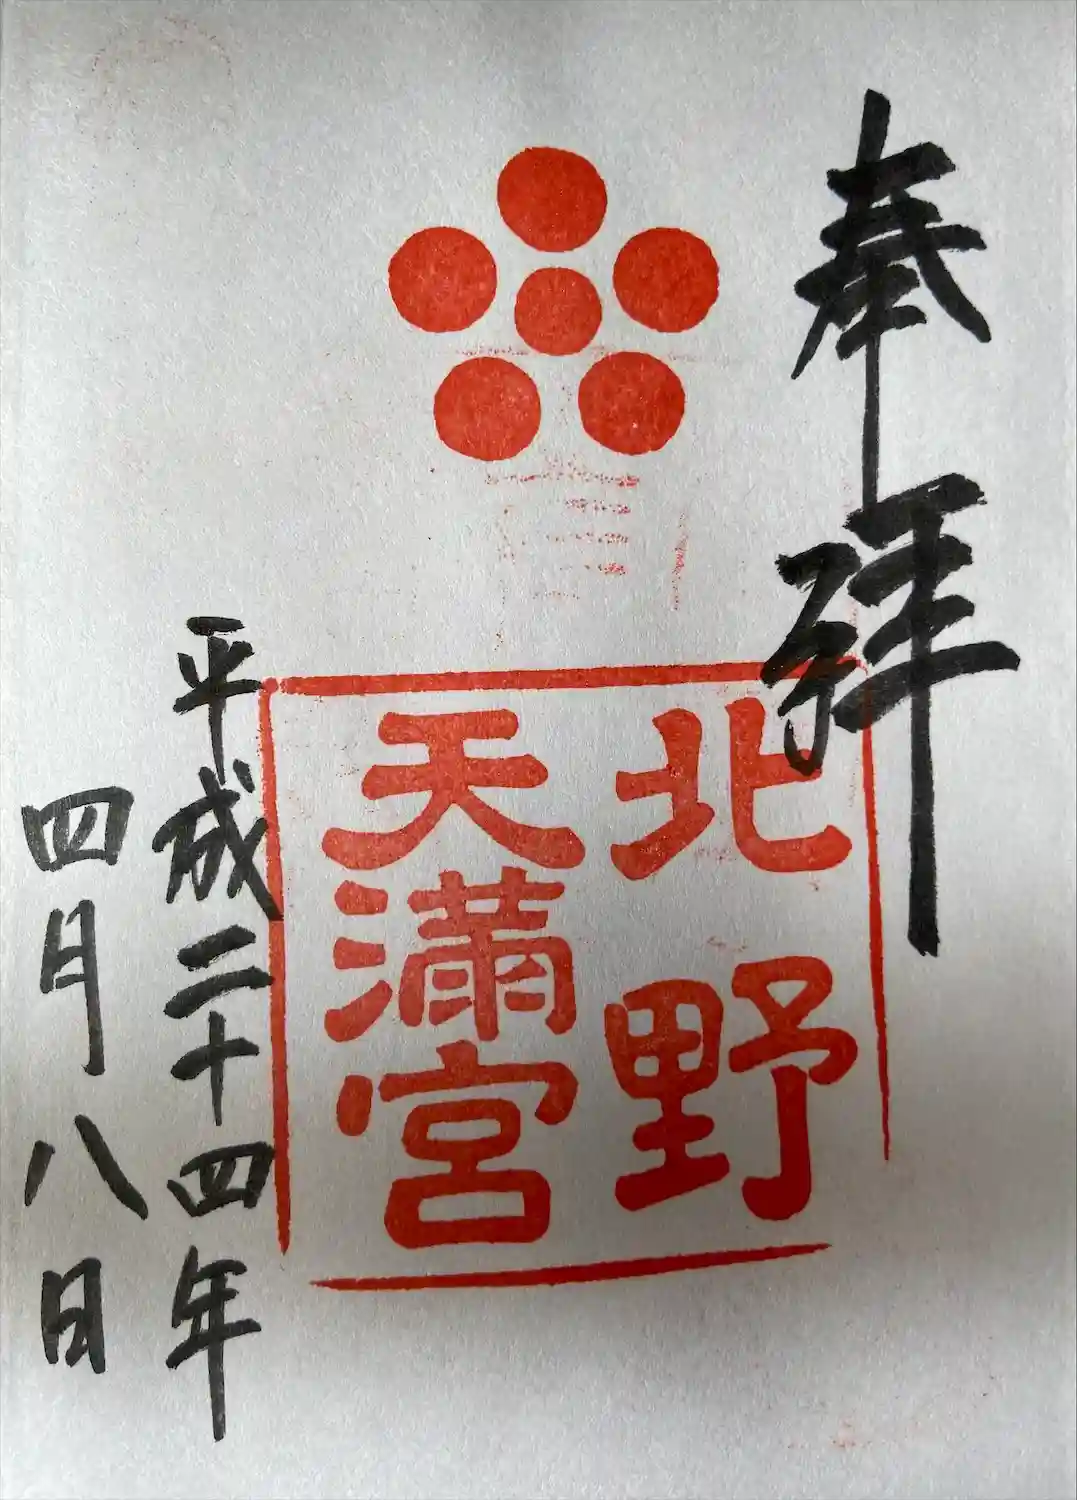 奉拝
北野
天満宮
平成二十四年
四月八日